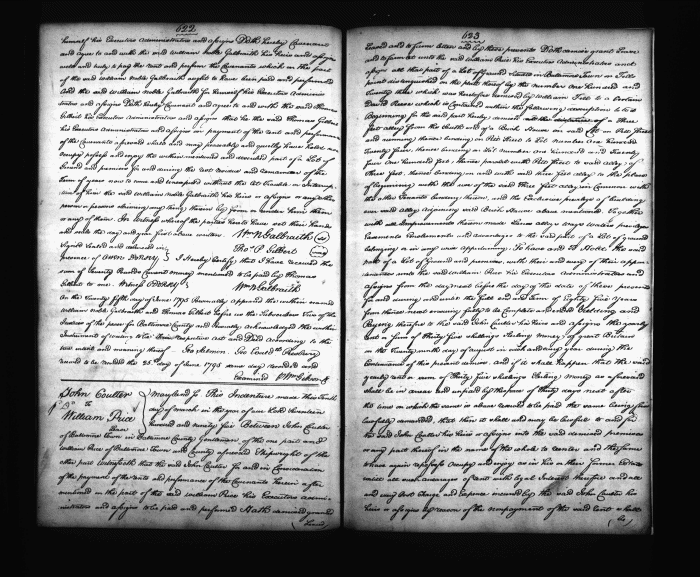 622
himself his Executors Administrators and assigns Doth hereby Covenant
and agree to and with the said William Noble Galbraith his heirs and assigns
well and truly to pay the rent and perform the Covenants which on the part
of the said William Noble Galbraith ought to have been paid and performed
And the said William Noble Galbraith for himself his Executors Adminis
trators and assigns Doth hereby Covenant and agree to and with the said Thomas
Gilbert his Executors Administrators and assigns that he the said Thomas Gilbert
his Executors Administrators and assigns on payment of the rent and performance
of the Covenants aforesaid shall and may peaceably and quietly have hold
occupy possess and enjoy the within mentioned and described part of a Lot of
Ground and premises for and during the rest residue and remainder of the
Term of years now to come and unexpired without the let trouble or Interrup
tion of him the said William Noble Galbraith his heirs or assigns or any other
person or persons claiming
or any of them In witness whereof the parties have hereto set their hands
and seals the day and year first above written Wm N Galbraith
Signed Sealed and delivered in Thos P Gilbert
presence of Owen Dorsey I Hereby Certify that I have received the
sum of Current money mentioned to be paid by Thomas
Gilbert to me. Witness O Dorsey Wm N Galbraith
On the Twenty fifth day of June 1795 Personally appeared the within named
William Noble Galbraith and Thomas Gilbert before us the Subscribers Two of the
Justices of the peace for Baltimore County and severally acknowledged the within
Instrument of writing to be their respective Act and Deed according to the
true intent and meaning thereof Geo Salmon
received to be recorded the 25th day of June 1795 same day recorded and
Examined Wm Gibson
John Coulter
to
William Price
Maryland Ss This Indenture made this
day of March in the year of our Lord Seventeen
hundred and ninety five Between John Coulter
of Baltimore Town in Baltimore County Gentleman of the one part and
William Price of Baltimore Town and County aforesaid Shipwright of the
other part Witnesseth that the said John Coulter for and in Consideration
of the payment of the rents and performance of the Covenants herein after
mentioned on the part of the said William Price his Executors Admin
istrators and assigns to be paid and performed Hath demised granted
Leased
623
Leased and to farm letten and by these presents Doth demise grant Lease
and to farm let unto the said William Price his Executors Administrators and
assigns all that part of a Lot of Ground situated in Baltimore Town on Fells
point distinguished on the plat thereof by the number one hundred and
Twenty three which was heretofore by William Fell to a certain
David which is Contained within the following to wit
Beginning for the said part hereby at the distance of a three
feet alley from the South end of a Brick House on said lot on
and running thence binding on to lot number one hundred
Twenty five, thence binding on lot number one hundred and Twenty
five one hundred feet, thence parallel with to said alley of
three feet, thence binding on and with said three feet alley to the place
of beginning with the use of the said three feet alley in Common with
the other Tenants binding thereon, and the exclusive privilege of building
over said alley adjoining said Brick House above mentioned. Together
with all improvements thereon made thereon alleys ways waters privileges
hereditaments and advantages to the said part of a Lot of ground
belonging or in any wise appertaining. To have and to Hold the said
part of a Lot of Ground and premises, with their and every of their appur
tenances unto the said William Price his Executors Administrators and
assigns from the day next before the day of the date of these presents
for and during and until the full end and term of Eighty five Years
from thence next ensuing fully to be complete and ended Yielding and
Paying therefor to the said John Coulter his heirs and assigns the yearly
rent or sum of thirty five shillings Sterling Money of great Britain
on the Twenty ninth day of August in each and every year during the
Continuance of this present demise, and if it shall happen that the said
yearly rent or sum of thirty five shillings Sterling Money as aforesaid
shall be in arrear and unpaid by the space of thirty days next after
the time on which the same is above reserved to be paid the same having been
lawfully demanded, that then it shall and may be lawful to and for
the said John Coulter his heirs or assigns into the said demised premises
or any part thereof in the name of the whole to reenter and the same
to have again repossess occupy and enjoy as in his or their former estate
until all such arrearages of rent with legal Interest therefor and all
and every cost charge and expense incurred by the said John Coulter his
heirs or assigns by reason of the nonpayment of the said rent shall
be